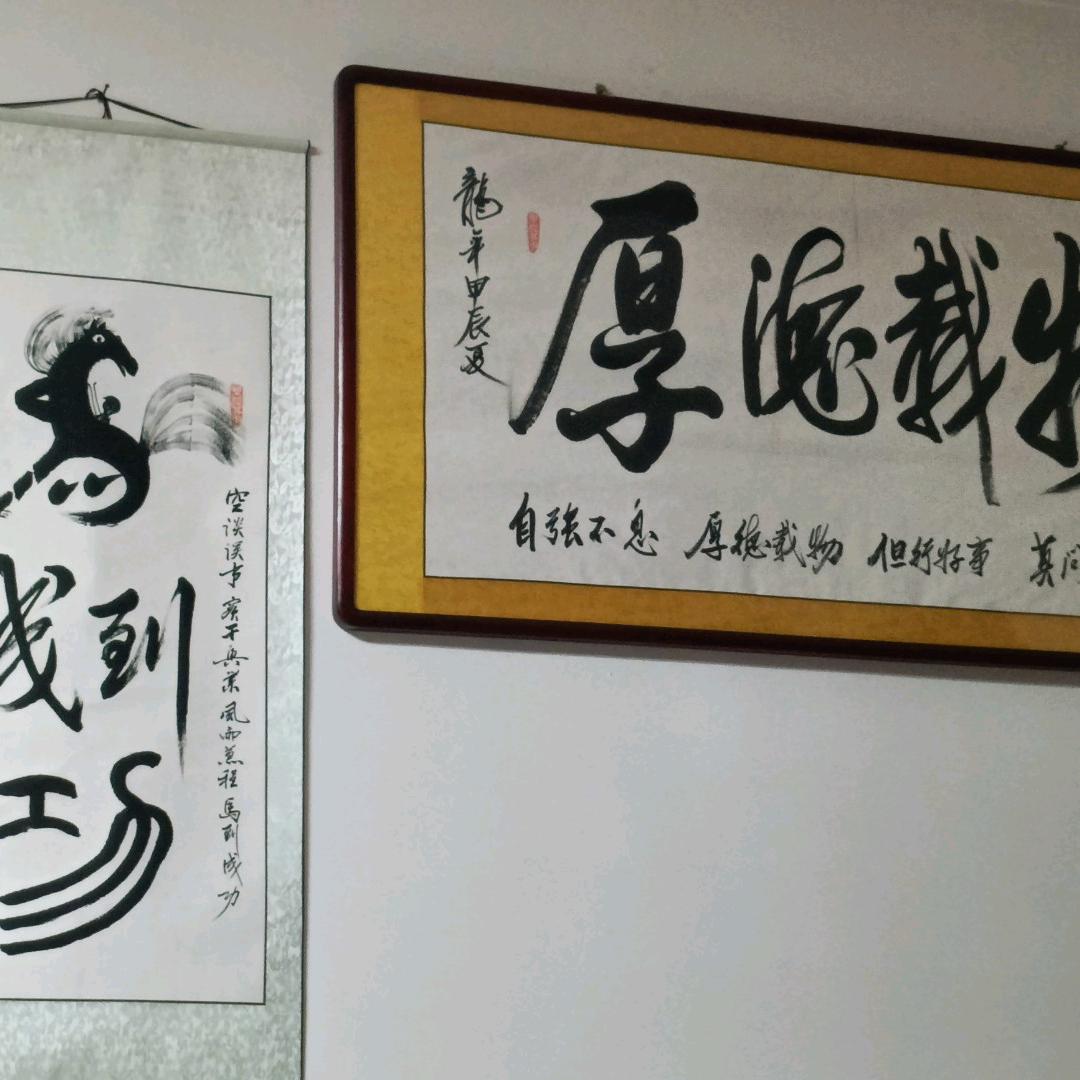 馬
到
成
功
空谈误事 实干兴业 风雨兼程 馬到成功
龍年甲辰夏
厚德载物
自強不息 厚德載物 但行好事 莫问